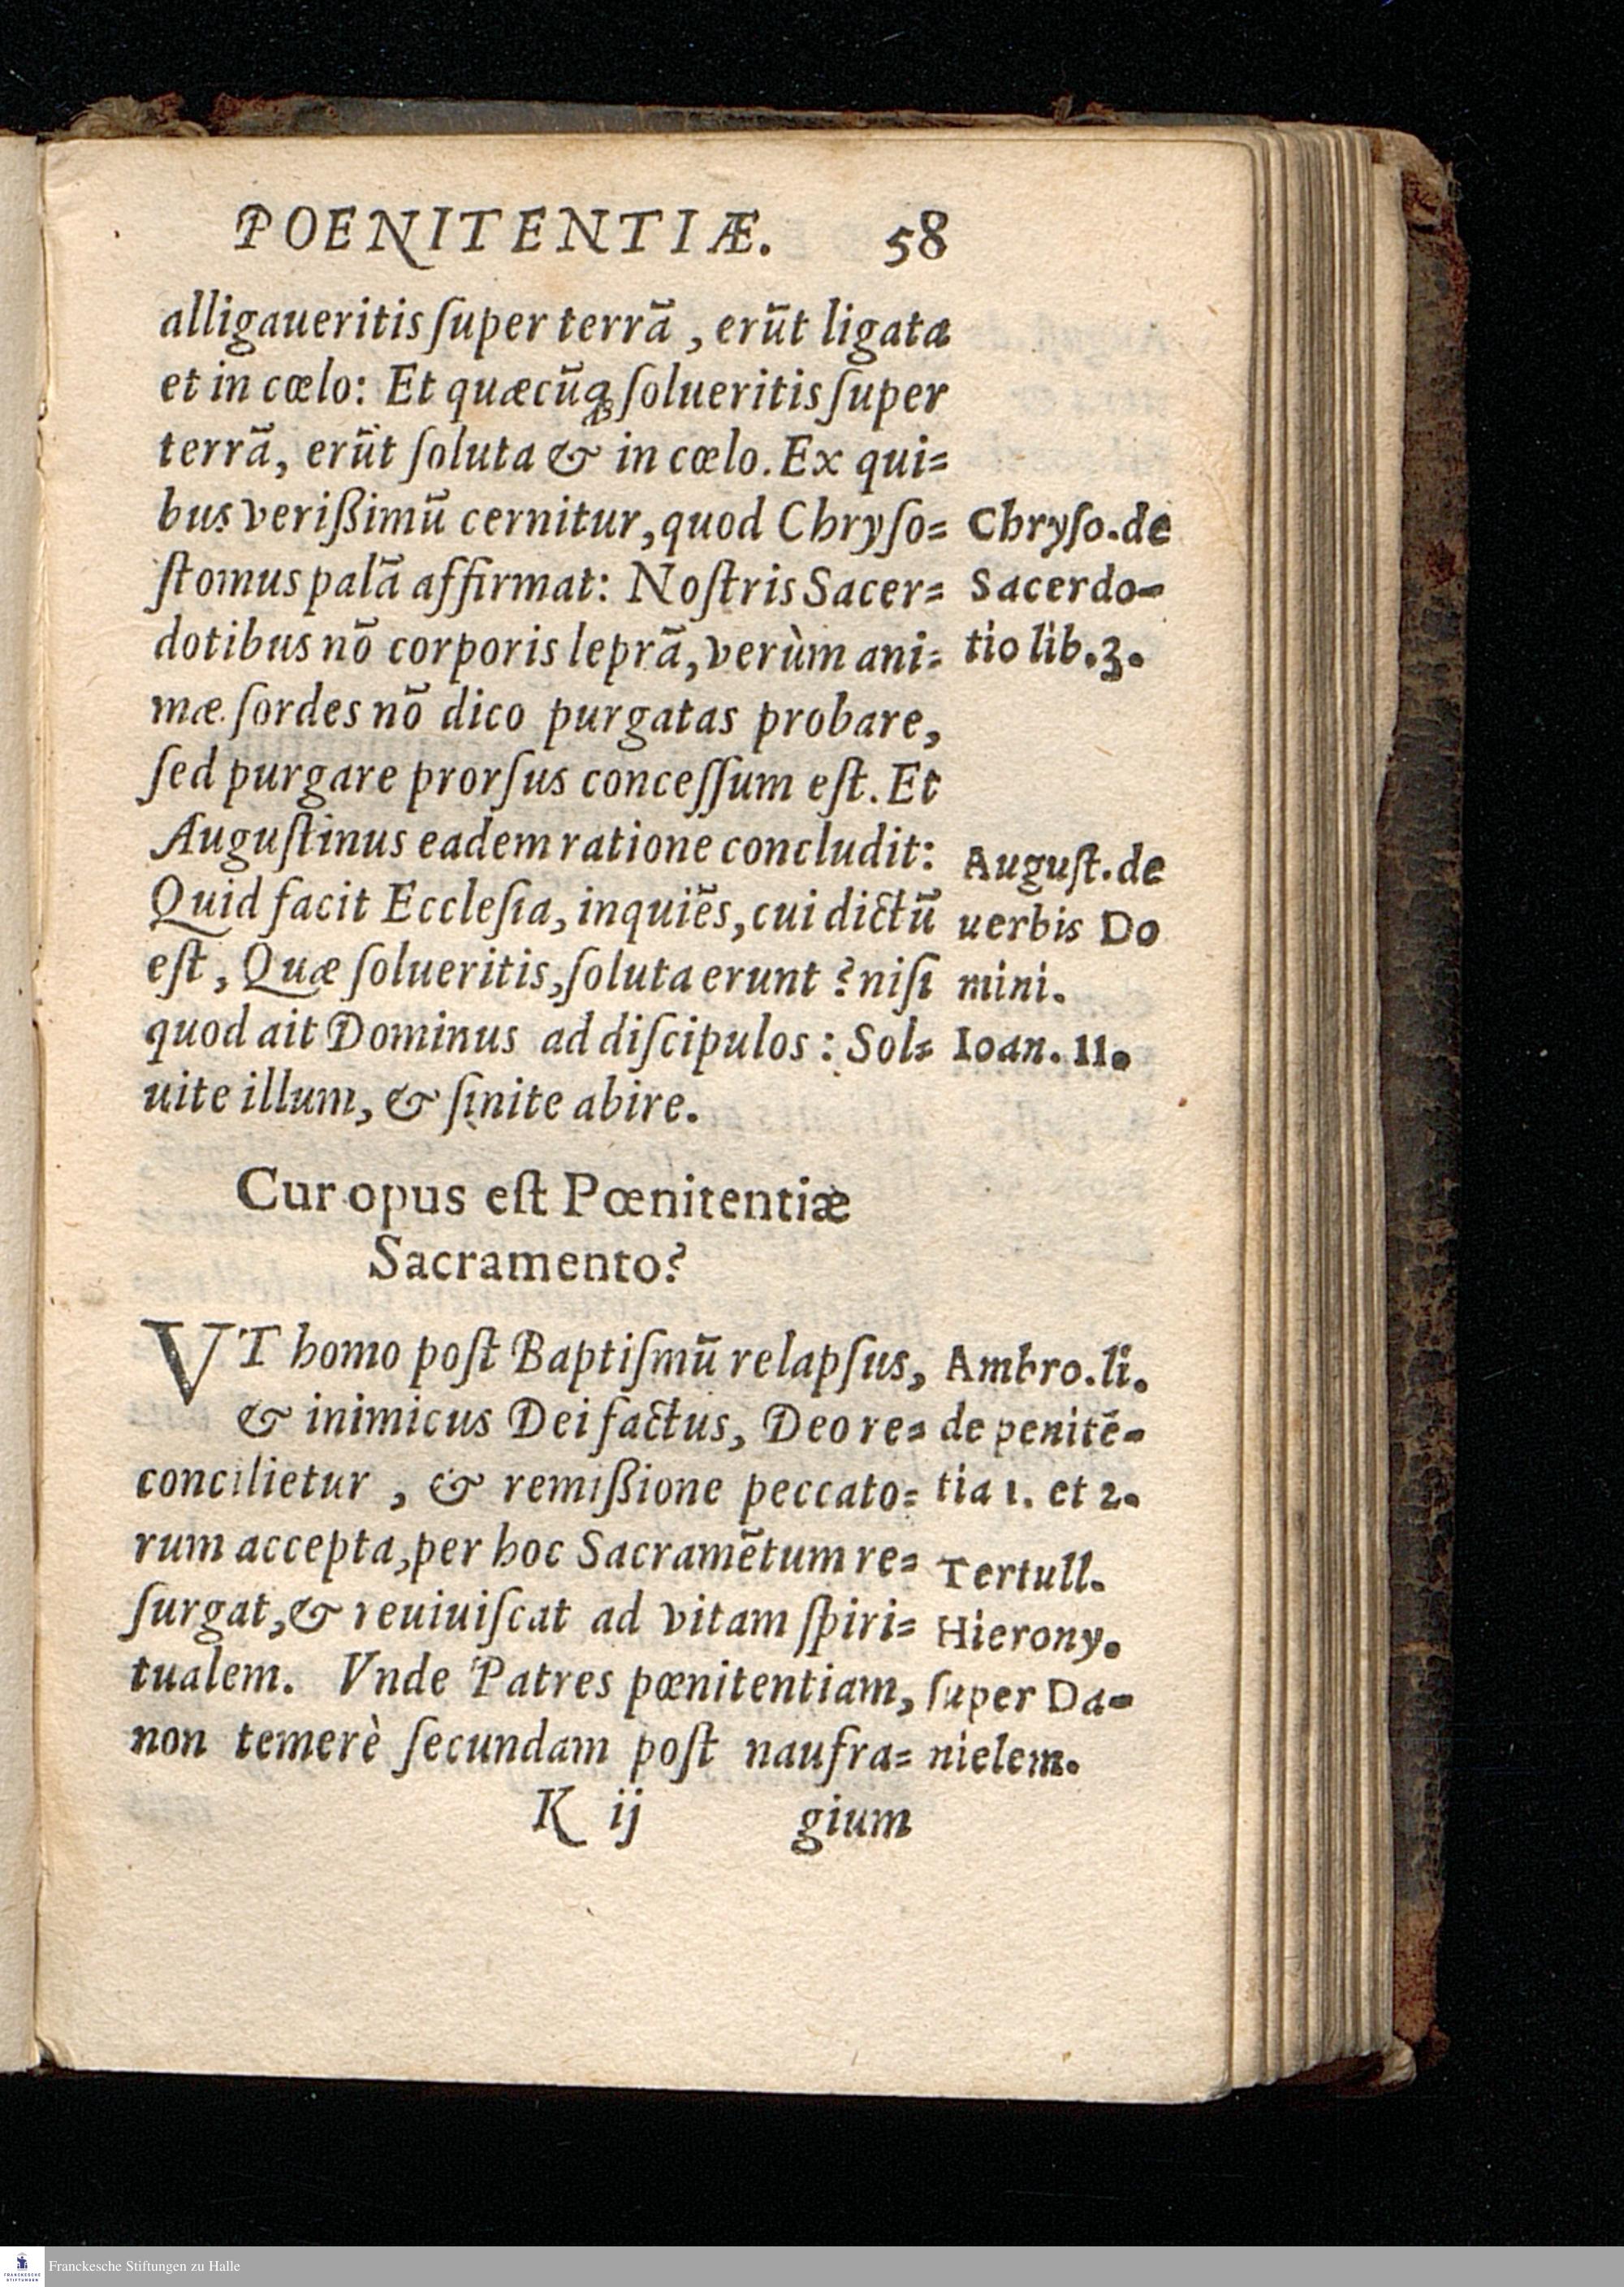 POENITENTIÆ. 58
alligaueritis ſuper terrā, erūt ligata
et in cœlo: Et quæcūqꝫ ſolueritis ſuper
terrā, erūt ſoluta & in cœlo. Ex qui=
bus verißimū cernitur, quod Chryſo=
ſtomus palā affirmat: Noſtris Sacer=
dotibus nō corporis leprā, verùm ani=
mæ ſordes nō dico purgatas probare,
ſed purgare prorſus conceſſum eſt. Et
Auguſtinus eadem ratione concludit:
Quid facit Eccleſia, inquiēs, cui dictū
eſt, Quæ ſolueritis, ſoluta erunt? niſi
quod ait Dominus ad diſcipulos: Sol=
uite illum, & ſinite abire.
Chryſo. de
Sacerdo-
tio lib. 3.
Auguſt. de
uerbis Do
mini.
Ioan. 11.
Cur opus eſt Pœnitentiæ
Sacramento?
VT homo poſt Baptiſmū relapſus,
& inimicus Dei factus, Deo re=
concilietur, & remißione peccato=
rum accepta, per hoc Sacramētum re=
ſurgat, & reuiuiſcat ad vitam ſpiri=
tualem. Vnde Patres pœnitentiam,
non temerè ſecundam poſt naufra=
Ambro. li.
de penitē-
tia 1. et 2.
Tertull.
Hierony.
ſuper Da-
nielem.
K ij gium
Franckesche Stiftungen zu Halle
FRANCKESCHE
STIFTUNGEN